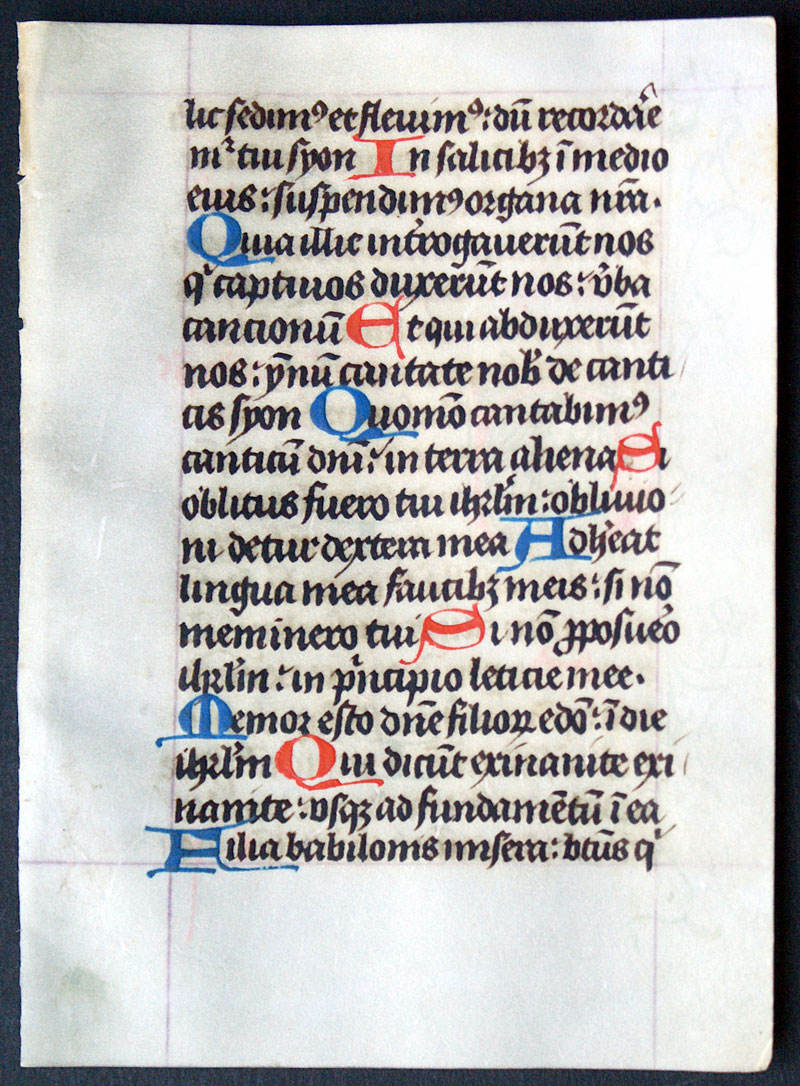 lic sedimꝰ et fleuimꝰ: dū recordar̄e
mᷣ tui syon In salicibꝫ ī medio
eius: suspendimꝰ organa nr̄a.
Quia illic int̓rogauerūt nos
qͥ captiuos duxerūt nos: v̓ba
cancionū Et qui abduxerūt
nos: ym̄nū cantate nob̓ de canti
cis syon Quomō cantabimꝰ
canticū dn̄i: in terra aliena Si
oblitus fuero tui ihrl̄m: obliuio
ni detur dextera mea Adh̓eat
lingua mea faucibꝫ meis: si nō
memin̄ero tui Si nō ꝓposuero
ihrl̄m: in pͥncipio leticie mee.
Memor esto dn̄e filioꝝ edō: ī die
ihrl̄m Qui dicūt exinanite exi
nanite: vsqꝫ ad fundamentū ī ea
Filia babilonis misera: btūs qͥ